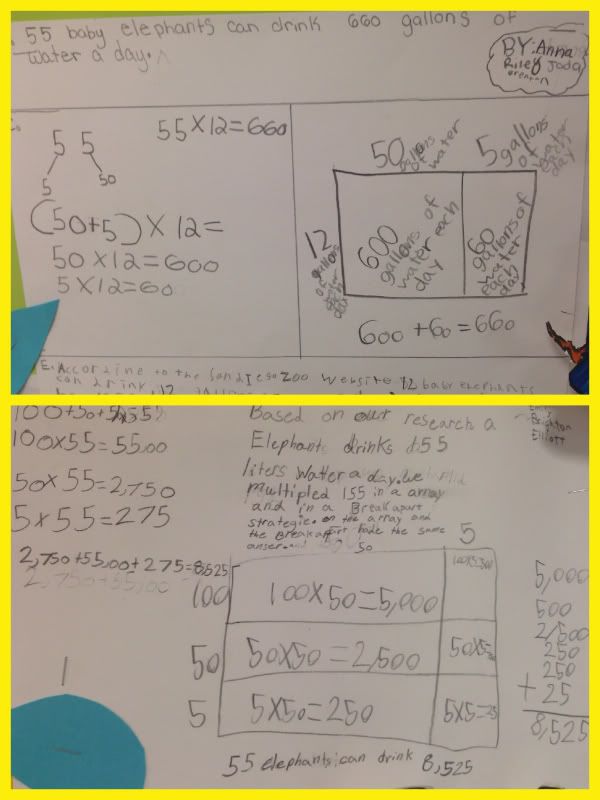 55 baby elephants can drink 660 gallons of
water a day.
BY: Anna
Riley Jada
Brenton
55X12=660
5 5
5 50
(50+5)X12=
50X12=600
5X12=60
50 gallons of water
5 gallons of water each day
12
600 gallons of water each day
60 gallons of water each day
600+60=660
E. Accordine to the SandIegoZoo website 12 baby elephants
can drink 12
100+50+5
100x55=55,00
50x55=2,750
5x55=275
2,750+55,00+275=8,525
2,750+55,00
Based on our research a
Elephant drinks 155
liters Watter a day. we
multipled 155 in a array
and in a Breakapart
strategie. on the array and
the Breakapart have the same
anser.
Brighton
Elliott
50
5
100
100X50=5,000
50
50X50=2,500
50X5
5
5X50=250
5X5=25
5,000
500
2,500
250
250
+ 25
8,525
55 elephants can drink 8,525